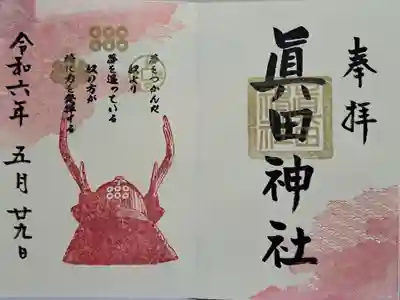 奉拝
眞田神社
夢をつかんだ
奴より
夢を追っている
奴の方が
時に力を発揮する
令和六年 五月 廿九日